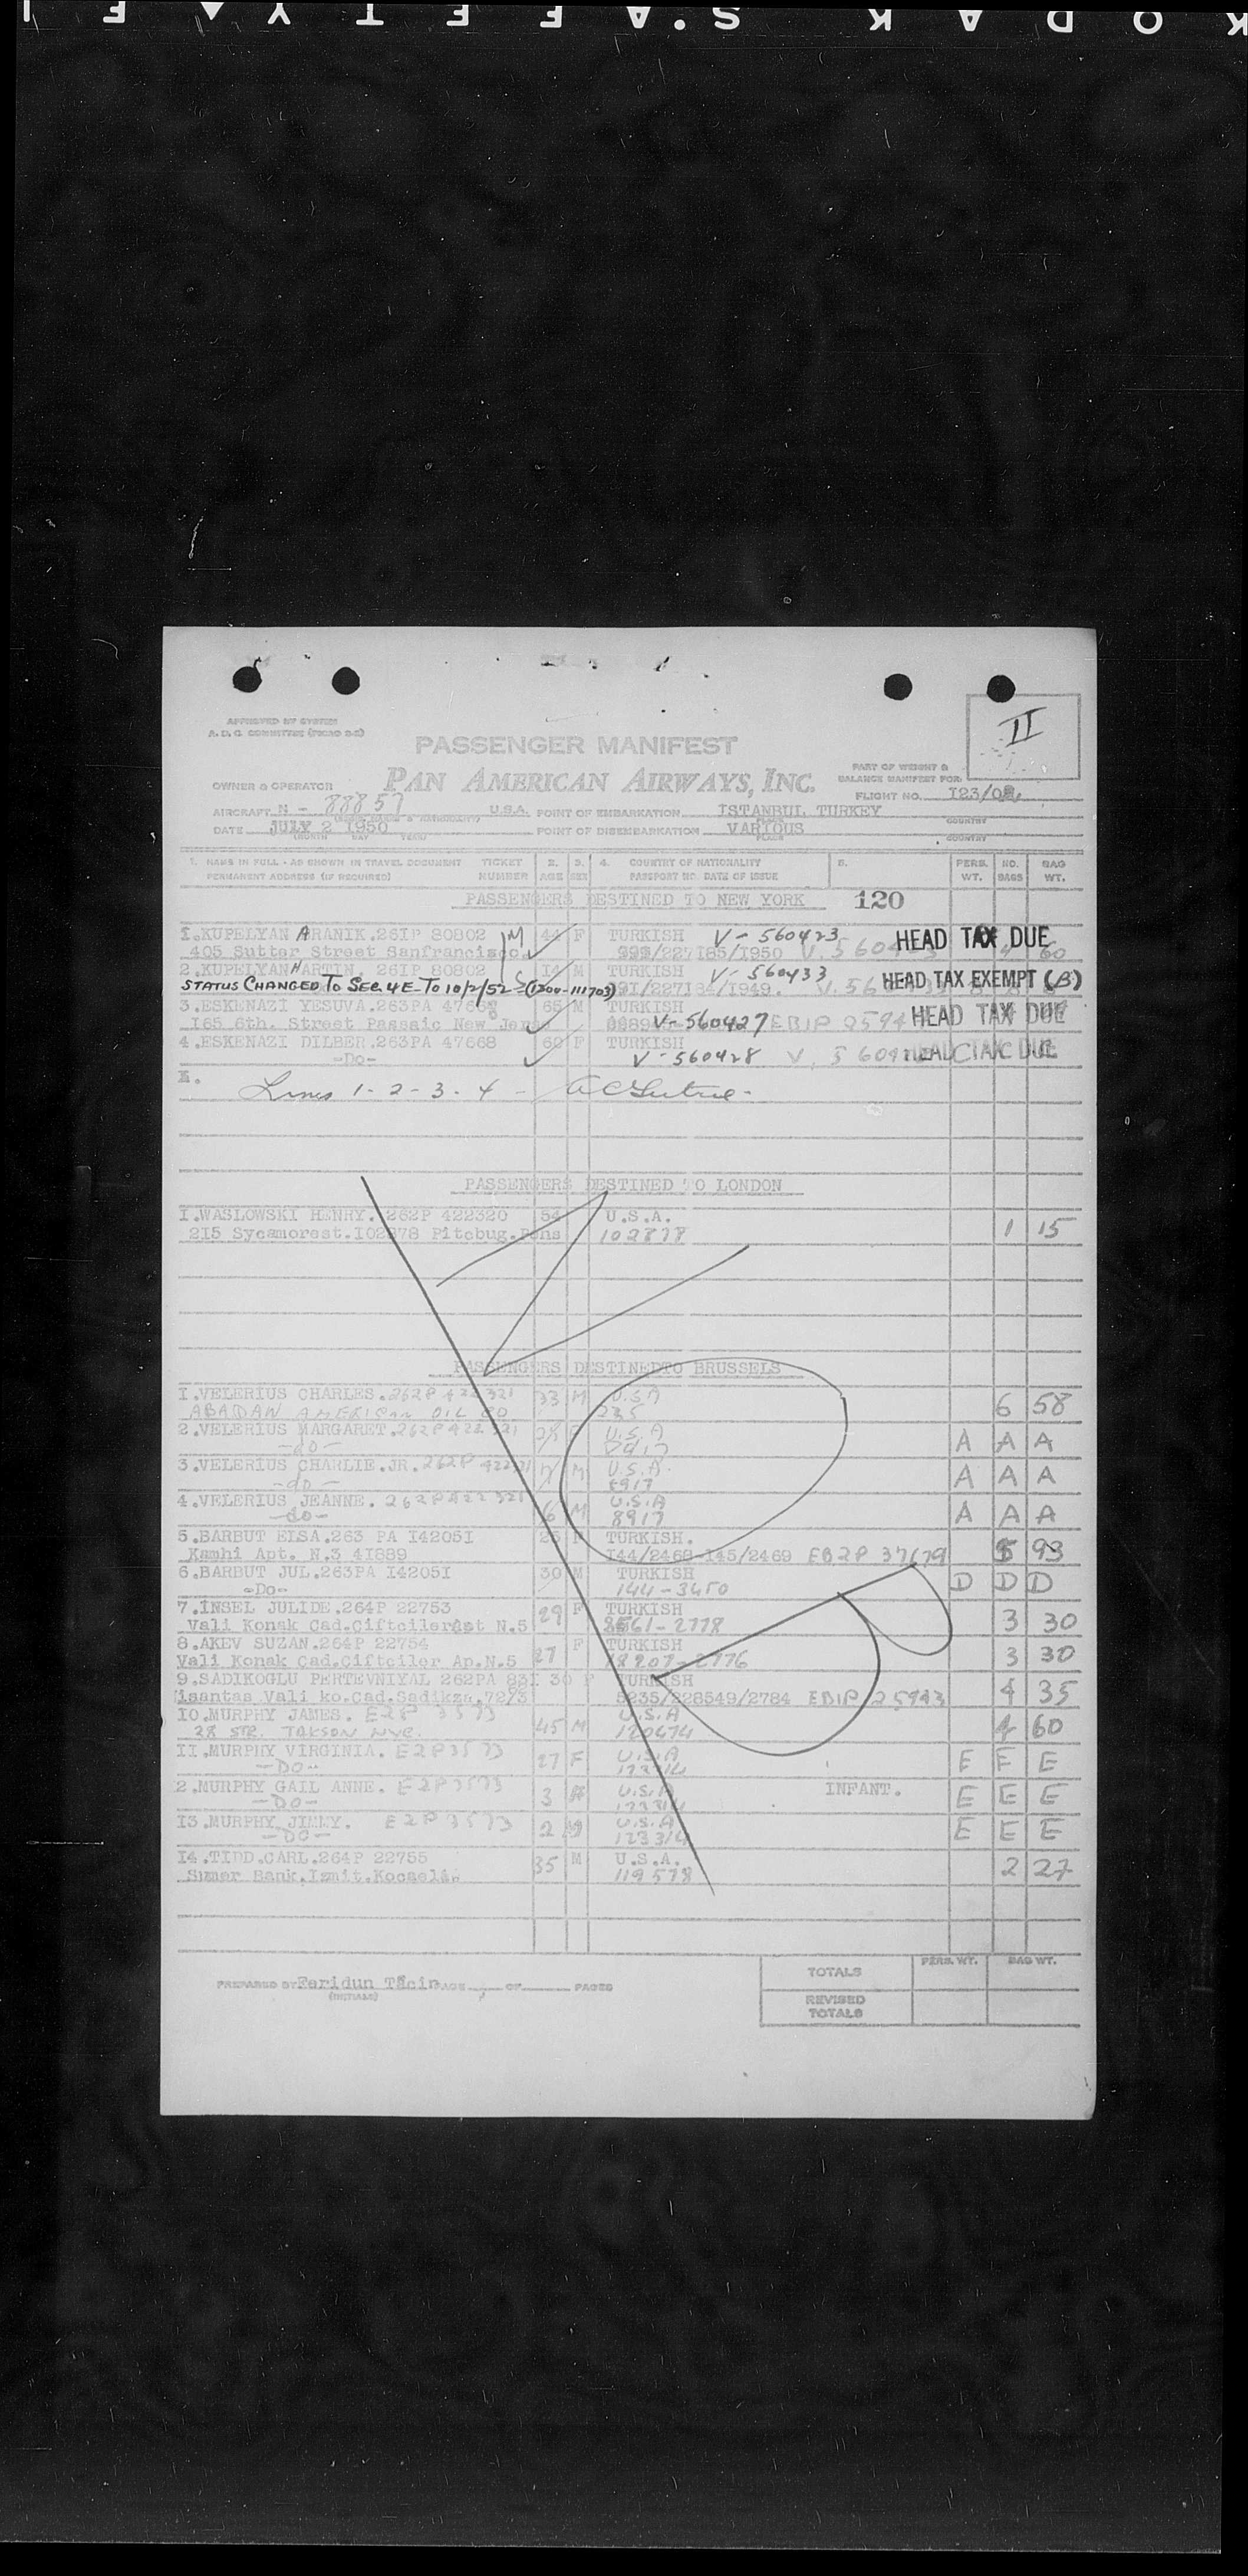 KODAK S.A.F.E.T.Y. FI
II
APPROVED BY SYSTEM
PASSENGER MANIFEST
PAN AMERICAN AIRWAYS, INC.
PART OF WEIGHT &
BALANCE MANIFEST FOR
OWNER & OPERATOR
FLIGHT NO. I23/0
AIRCRAFT N - 88857 U.S.A. POINT OF EMBARKATION ISTANBUL TURKEY
DATE JULY 2 1950 POINT OF DISEMBARKATION VARIOUS
1. NAME IN FULL - AS SHOWN IN TRAVEL DOCUMENT TICKET 2. 3. 4. COUNTRY OF NATIONALITY 5. PERS. NO. BAG
PERMANENT ADDRESS (IF REQUIRED) NUMBER AGE SEX PASSPORT NO. DATE OF ISSUE WT. BAGS WT.
PASSENGERS DESTINED TO NEW YORK 120
I.KUPELYAN ARANIK.26IP 80802 M 44 F TURKISH V-560423 HEAD TAX DUE
405 Sutter Street Sanfrancisco. 227I85/1950 60
2.KUPELYAN HARTIN. 26IP 80802 I4 M TURKISH V-560433 HEAD TAX EXEMPT (B)
STATUS CHANGED TO SEC 4E TO 10/2/52 (1300-111703)
3.ESKENAZI YESUVA.263PA 47668 65 M TURKISH V-560427 HEAD TAX DUE
I65 6th. Street Passaic New Jers
4.ESKENAZI DILBER.263PA 47668 60 F TURKISH V-560428 HEAD TAX DUE
-Do-
Lines 1-2-3-4 -
PASSENGERS DESTINED TO LONDON
I.WASLOWSKI HENRY.262P 422320 54 U.S.A.
2I5 Sycamorest.I02878 Pitcbug.Pens 102878 1 15
PASSENGERS DESTINEDTO BRUSSELS
I.VELERIUS CHARLES.262P 422321 33 M U.S.A
ABADAN AMERICAN OIL CO 235 6 58
2.VELERIUS MARGARET.262P 422321 U.S.A
-do- A A A
3.VELERIUS CHARLIE.JR.262P 422321 M U.S.A.
-do- 8917 A A A
4.VELERIUS JEANNE. 262P 422321 6 M U.S.A
-do- 8917 A A A
5.BARBUT ELSA.263 PA I4205I TURKISH.
Kamhi Apt. N.3 41689 I44/2468-I45/2469 EB2P 37679 5 93
6.BARBUT JUL.263PA I4205I 30 M TURKISH
-Do- 144-3450 D D D
7.İNSEL JULIDE.264P 22753 29 F TURKISH
Vali Konak Cad.Ciftciler Apt N.5 8561-2778 3 30
8.AKEV SUZAN.264P 22754 27 F TURKISH
Vali Konak Çad.Çiftciler Ap.N.5 18207-2776 3 30
9.SADIKOGLU PERTEVNIYAL 262PA 83I 30 F TURKISH
isantas Vali ko.Cad.Sadikza.72/3 5235/228549/2784 EBIP 25943 4 35
IO.MURPHY JAMES. E2P 3573 45 M U.S.A
28 STR. NYC. 120474 4 60
II.MURPHY VIRGINIA. E2P3573 27 F U.S.A
-Do- 123314 E E E
2.MURPHY GAIL ANNE. E2P3573 3 U.S.A INFANT.
-Do- 123314 E E E
I3.MURPHY JIMMY. E2P3573 2 M U.S.A
-Do- 123314 E E E
I4.TIDD.CARL.264P 22755 35 M U.S.A.
Sumer Bank.Izmit.Kocaeli. 119578 2 27
PREPARED BY Feridun Tacin PAGE OF PAGES
(INITIALS)
PERS. WT. BAG WT.
TOTALS
REVISED
TOTALS